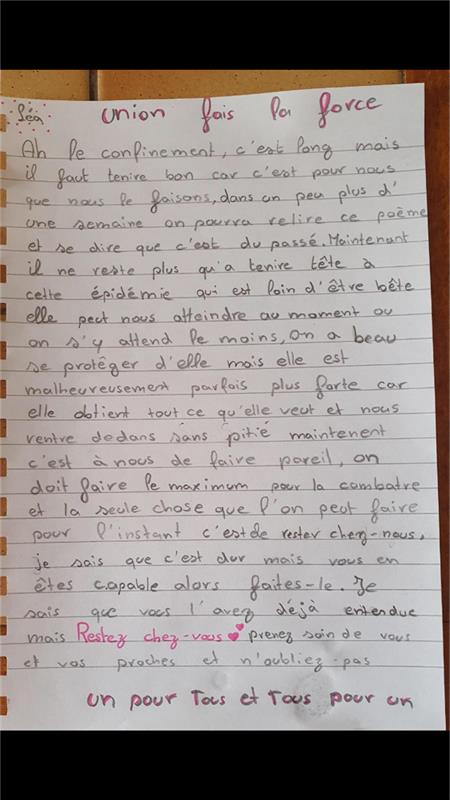 Léa
union fais la force
Ah le confinement, c'est long mais
il faut tenire bon car c'est pour nous
que nous le faisons, dans un peu plus d'
une semaine on pourra relire ce poème
et se dire que c'est du passé. Maintenant
il ne reste plus qu'a tenire tête à
cette épidémie qui est loin d'être bête
elle peut nous atteindre au moment ou
on s'y attend le moins, On a beau
se protéger d'elle mais elle est
malheureusement parfois plus forte car
elle obtient tout ce qu'elle veut et nous
rentre dedans sans pitié maintenent
c'est à nous de faire pareil, on
doit faire le maximum pour la combatre
et la seule chose que l'on peut faire
pour l'instant c'est de rester chez-nous,
je sais que c'est dur mais vous en
êtes capable alors faites-le. Je
sais que vous l'avez déjà entendue
mais Restez chez-vous prenez soin de vous
et vos proches et n'oubliez-pas
un pour Tous et Tous pour un